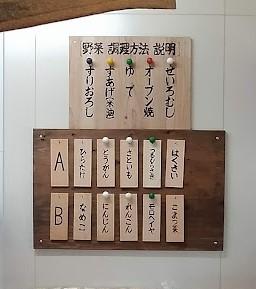 野菜 調理方法 説明
せいろむし
オーブン焼
ゆで
すあげ(米油)
すりおろし
A
はくさい
さといも
とうがん
ひらたけ
B
こまつ菜
モロヘイヤ
れんこん
にんじん
なめこ